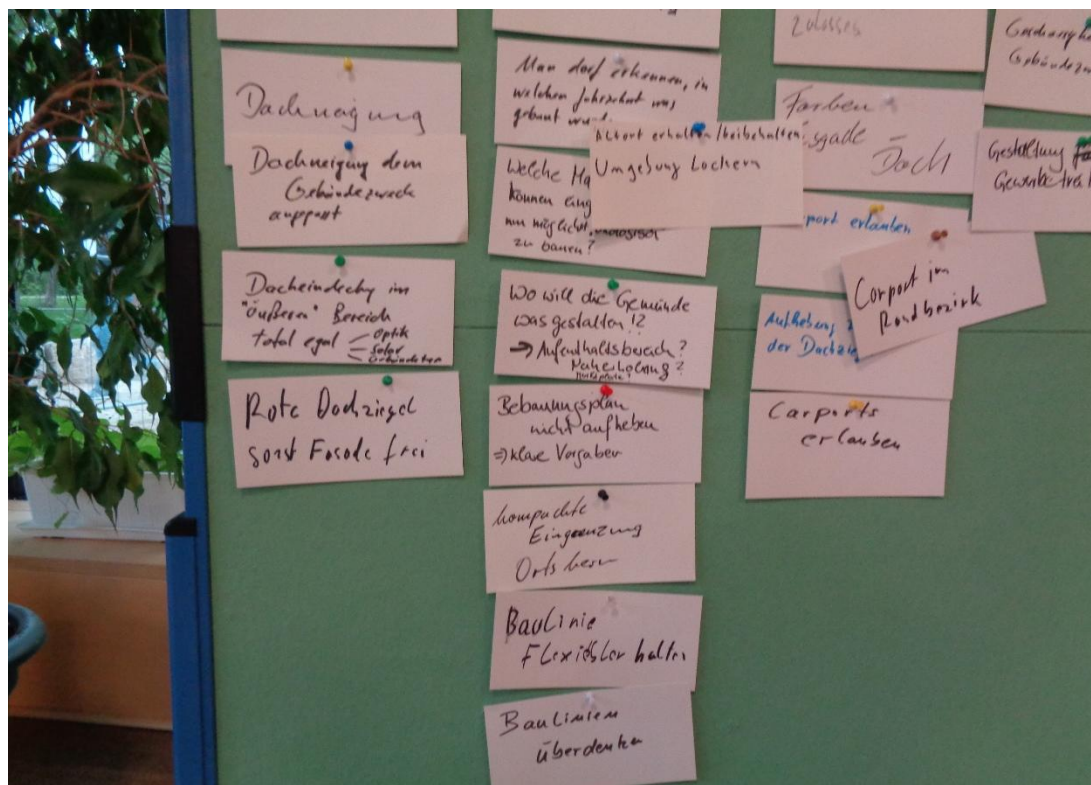 Dachneigung
Dachneigung dem
Gebäudezweck
anppasst
Dacheindeckg im
"äußeren" Bereich
total egal
Optik
Solar
Rote Dachziegel
sonst Fasade frei
Man darf erkennen, in
welchen Jahrzehnt was
gebaut wurde
Altort erhalten/beibehalten
Umgebung Lockern
Welche
können
nun möglichst ökologisch
zu bauen?
Wo will die Gemeinde
was gestalten!?
→ Aufenthaltsbereich?
Naherholung?
Bebauungsplan
nicht aufheben
⇒ klare Vorgaben
kompackte
Eingrenzung
Ortskern
Baulinie
Flexiebler halten
Baulinien
überdenken
zulasses
Farben
Dach
erlauben
Carport im
Randbezirk
Aufhebung
der
Carports
erlauben
Gestaltung